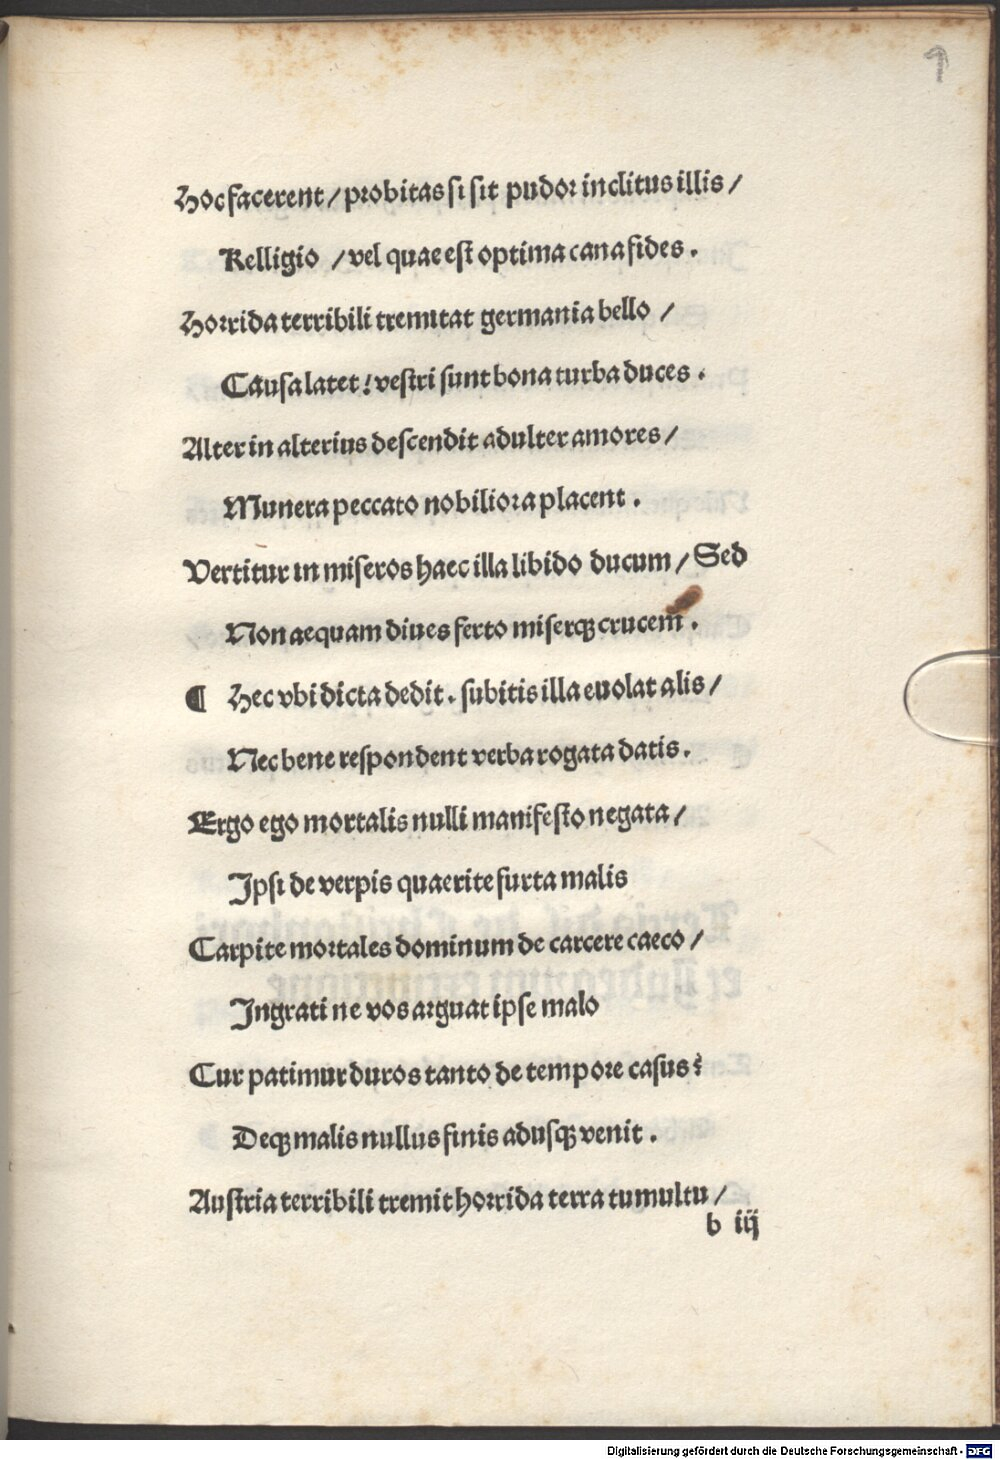 9
Hoc facerent / probitas si sit pudor inclitus illis /
Relligio / vel quae est optima cana fides .
Horrida terribili tremitat germania bello /
Causa latet ! vestri sunt bona turba duces .
Alter in alterius descendit adulter amores /
Munera peccato nobiliora placent .
Vertitur in miseros haec illa libido ducum / Sed
Non aequam diues ferto miserqꝫ crucem .
¶ Hec vbi dicta dedit . subitis illa euolat alis /
Nec bene respondent verba rogata datis .
Ergo ego mortalis nulli manifesto negata /
Ipsi de verpis quaerite furta malis
Carpite mortales dominum de carcere caeco /
Ingrati ne vos arguat ipse malo
Cur patimur duros tanto de tempore casus ?
Deqꝫ malis nullus finis adusqꝫ venit .
Austria terribili tremit horrida terra tumultu /
b iij
Digitalisierung gefördert durch die Deutsche Forschungsgemeinschaft - DFG